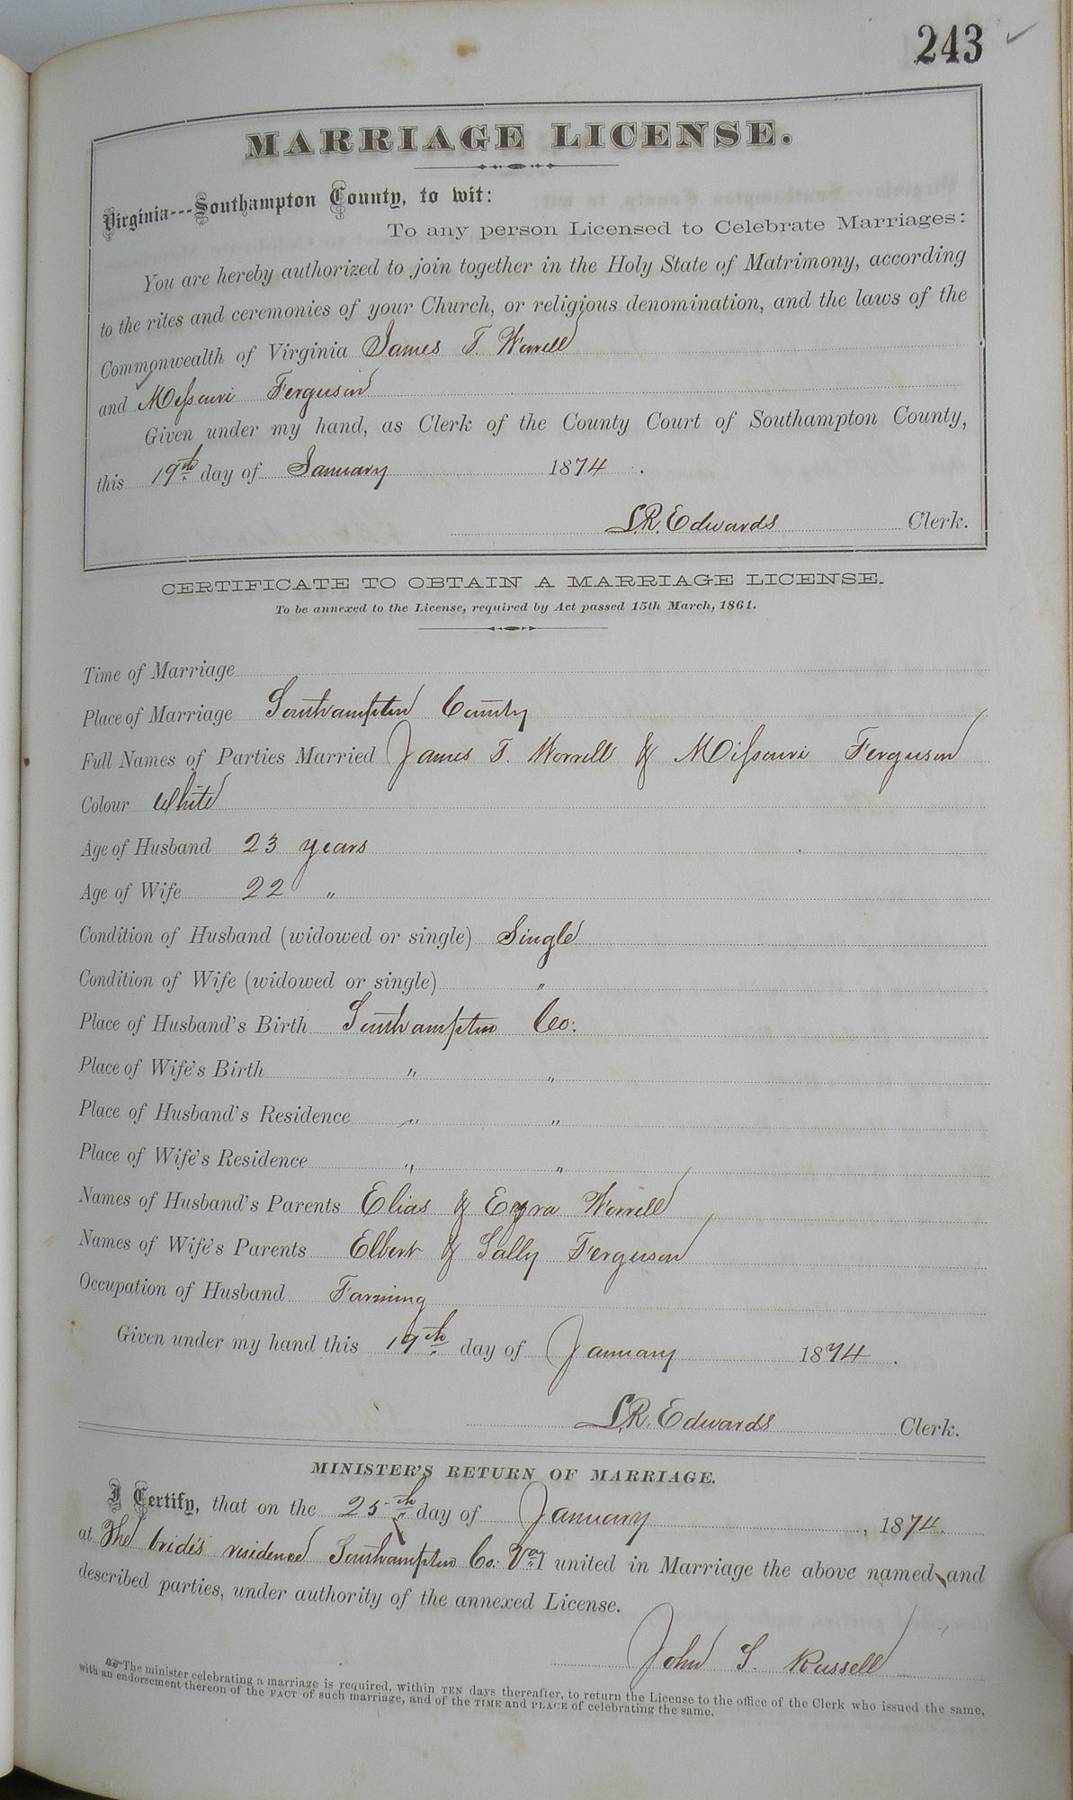 243 ✓
MARRIAGE LICENSE.
Virginia---Southampton County, to wit:
To any person Licensed to Celebrate Marriages:
You are hereby authorized to join together in the Holy State of Matrimony, according
to the rites and ceremonies of your Church, or religious denomination, and the laws of the
Commonwealth of Virginia James T. Worrell
and Missouri Ferguson
Given under my hand, as Clerk of the County Court of Southampton County,
this 19th day of January 1874.
L.R. Edwards Clerk.
CERTIFICATE TO OBTAIN A MARRIAGE LICENSE.
To be annexed to the License, required by Act passed 15th March, 1861.
Time of Marriage
Place of Marriage Southampton County
Full Names of Parties Married James T. Worrell & Missouri Ferguson
Colour White
Age of Husband 23 years
Age of Wife 22 "
Condition of Husband (widowed or single) Single
Condition of Wife (widowed or single) "
Place of Husband's Birth Southampton Co:
Place of Wife's Birth " "
Place of Husband's Residence " "
Place of Wife's Residence " "
Names of Husband's Parents Elias & Worrell
Names of Wife's Parents Elbert & Sally Ferguson
Occupation of Husband Farming
Given under my hand this 19th day of January 1874.
L.R. Edwards Clerk.
MINISTER'S RETURN OF MARRIAGE.
I Certify, that on the 25th day of January, 1874.
at The bride's residence Southampton Co: Va I united in Marriage the above named and
described parties, under authority of the annexed License.
John Russell
☞ The minister celebrating a marriage is required, within TEN days thereafter, to return the License to the office of the Clerk who issued the same,
with an endorsement thereon of the FACT of such marriage, and of the TIME and PLACE of celebrating the same.